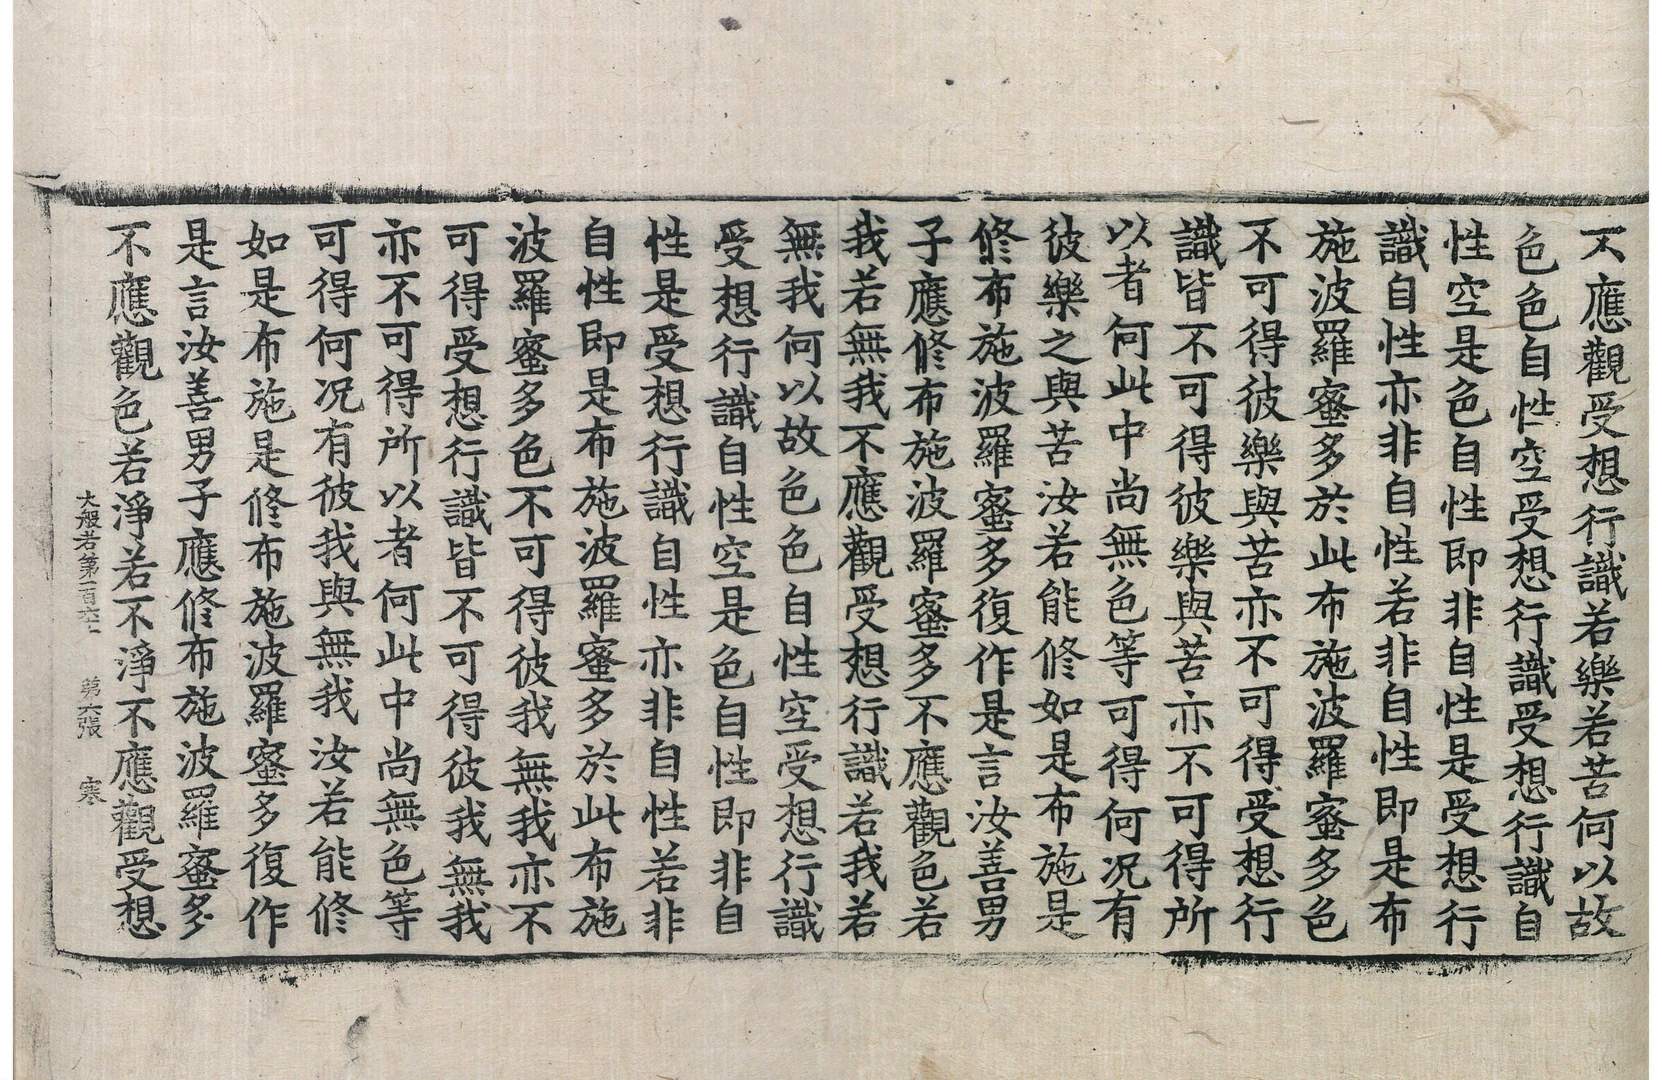 不應觀受想行識若樂若苦何以故
色色自性空受想行識受想行識自
性空是色自性即非自性是受想行
識自性亦非自性若非自性即是布
施波羅蜜多於此布施波羅蜜多色
不可得彼樂與苦亦不可得受想行
識皆不可得彼樂與苦亦不可得所
以者何此中尚無色等可得何况有
彼樂之與苦汝若能修如是布施是
修布施波羅蜜多復作是言汝善男
子應修布施波羅蜜多不應觀色若
我若無我不應觀受想行識若我若
無我何以故色色自性空受想行識
受想行識自性空是色自性即非自
性是受想行識自性亦非自性若非
自性即是布施波羅蜜多於此布施
波羅蜜多色不可得彼我無我亦不
可得受想行識皆不可得彼我無我
亦不可得所以者何此中尚無色等
可得何况有彼我與無我汝若能修
如是布施是修布施波羅蜜多復作
是言汝善男子應修布施波羅蜜多
不應觀色若淨若不淨不應觀受想
大般若第一百六十 第六張 寒